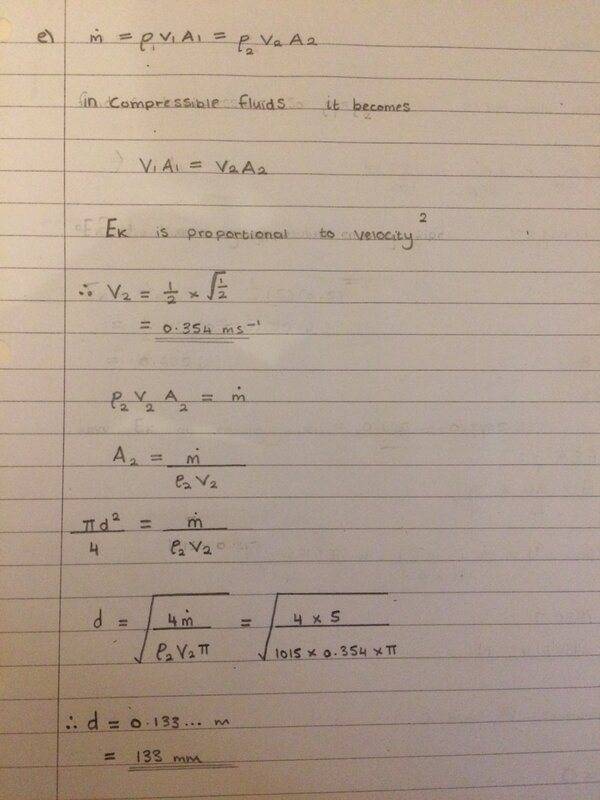 e) ṁ = ρ₁V₁A₁ = ρ₂V₂A₂
in compressible fluids it becomes
V₁A₁ = V₂A₂
Eₖ is proportional to velocity²
∴ V₂ = 1/2 × √(1/2)
= 0.354 ms⁻¹
ρ₂V₂A₂ = ṁ
A₂ = ṁ / ρ₂V₂
πd²/4 = ṁ / ρ₂V₂
d = √(4ṁ / ρ₂V₂π) = √(4 × 5 / 1015 × 0.354 × π)
∴ d = 0.133... m
= 133 mm